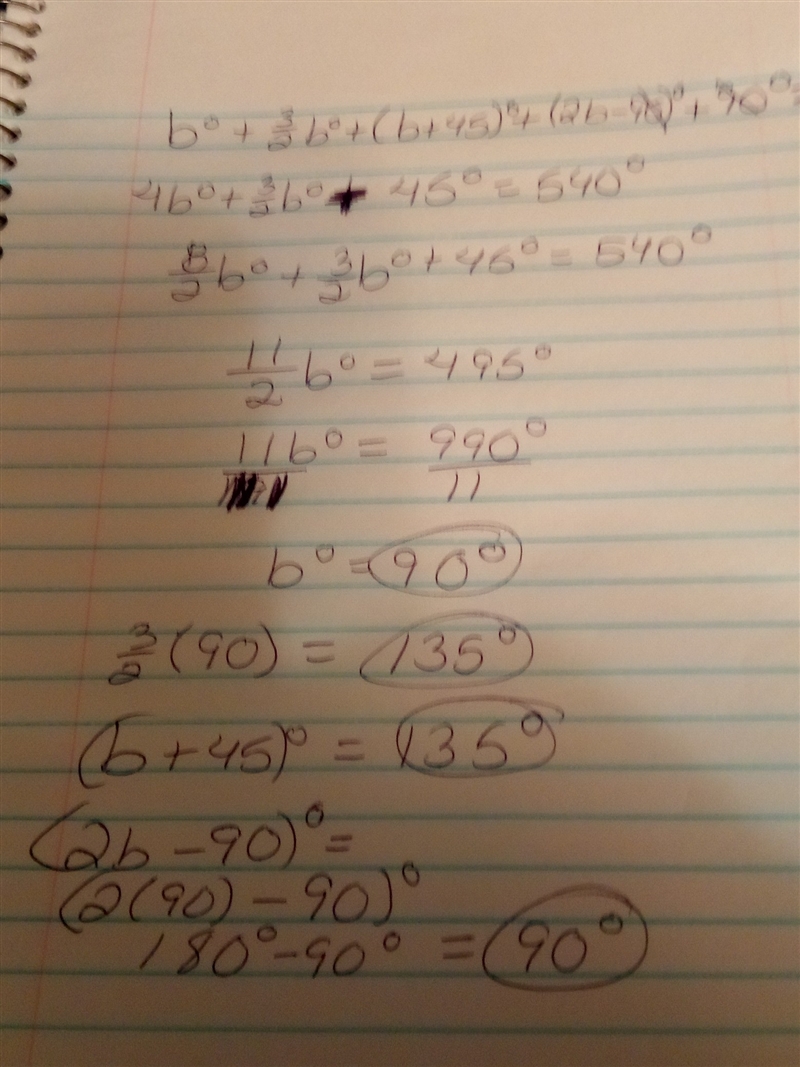 b° + 3/2 b° + (b+45)° + (2b-90)° + 90° =
4b° + 3/2 b° + 45° = 540°
8/2 b° + 3/2 b° + 45° = 540°
11/2 b° = 495°
11b° = 990°/11
b° = 90°
3/2 (90) = 135°
(b+45)° = 135°
(2b-90)° =
(2(90) - 90)°
180° - 90° = 90°